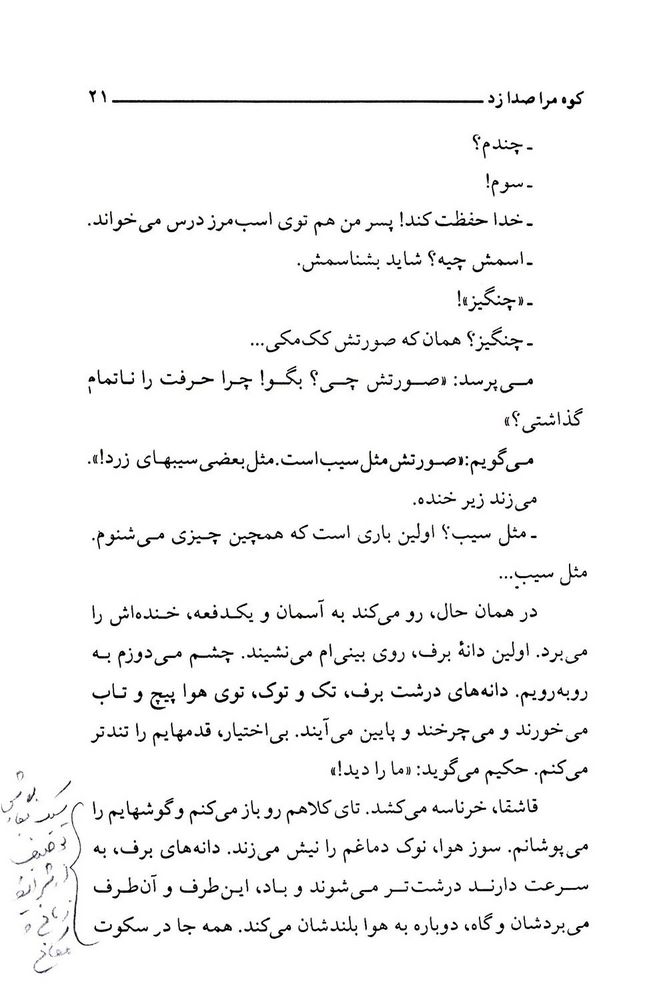 کوه مرا صدا زد ۲۱
ـ چندم؟
ـ سوم!
ـ خدا حفظت کند! پسر من هم توی اسب‌مرز درس می‌خواند.
ـ اسمش چیه؟ شاید بشناسمش.
ـ «چنگیز»!
ـ چنگیز؟ همان که صورتش کک‌مکی...
می‌پرسد: «صورتش چی؟ بگو! چرا حرفت را ناتمام
گذاشتی؟»
می‌گویم: «صورتش مثل سیب است. مثل بعضی سیبهای زرد!».
می‌زند زیر خنده.
ـ مثل سیب؟ اولین باری است که همچین چیزی می‌شنوم.
مثل سیب...
در همان حال، رو می‌کند به آسمان و یکدفعه، خنده‌اش را
می‌برد. اولین دانهٔ برف، روی بینی‌ام می‌نشیند. چشم می‌دوزم به
روبه‌رویم. دانه‌های درشت برف، تک و توک، توی هوا پیچ و تاب
می‌خورند و می‌چرخند و پایین می‌آیند. بی‌اختیار، قدمهایم را تندتر
می‌کنم. حکیم می‌گوید: «ما را دید!»
قاشقا، خرناسه می‌کشد. تای کلاهم رو باز می‌کنم و گوشهایم را
می‌پوشانم. سوز هوا، نوک دماغم را نیش می‌زند. دانه‌های برف، به
سرعت دارند درشت‌تر می‌شوند و باد، این‌طرف و آن‌طرف
می‌بردشان و گاه، دوباره به هوا بلندشان می‌کند. همه جا در سکوت
توصیف